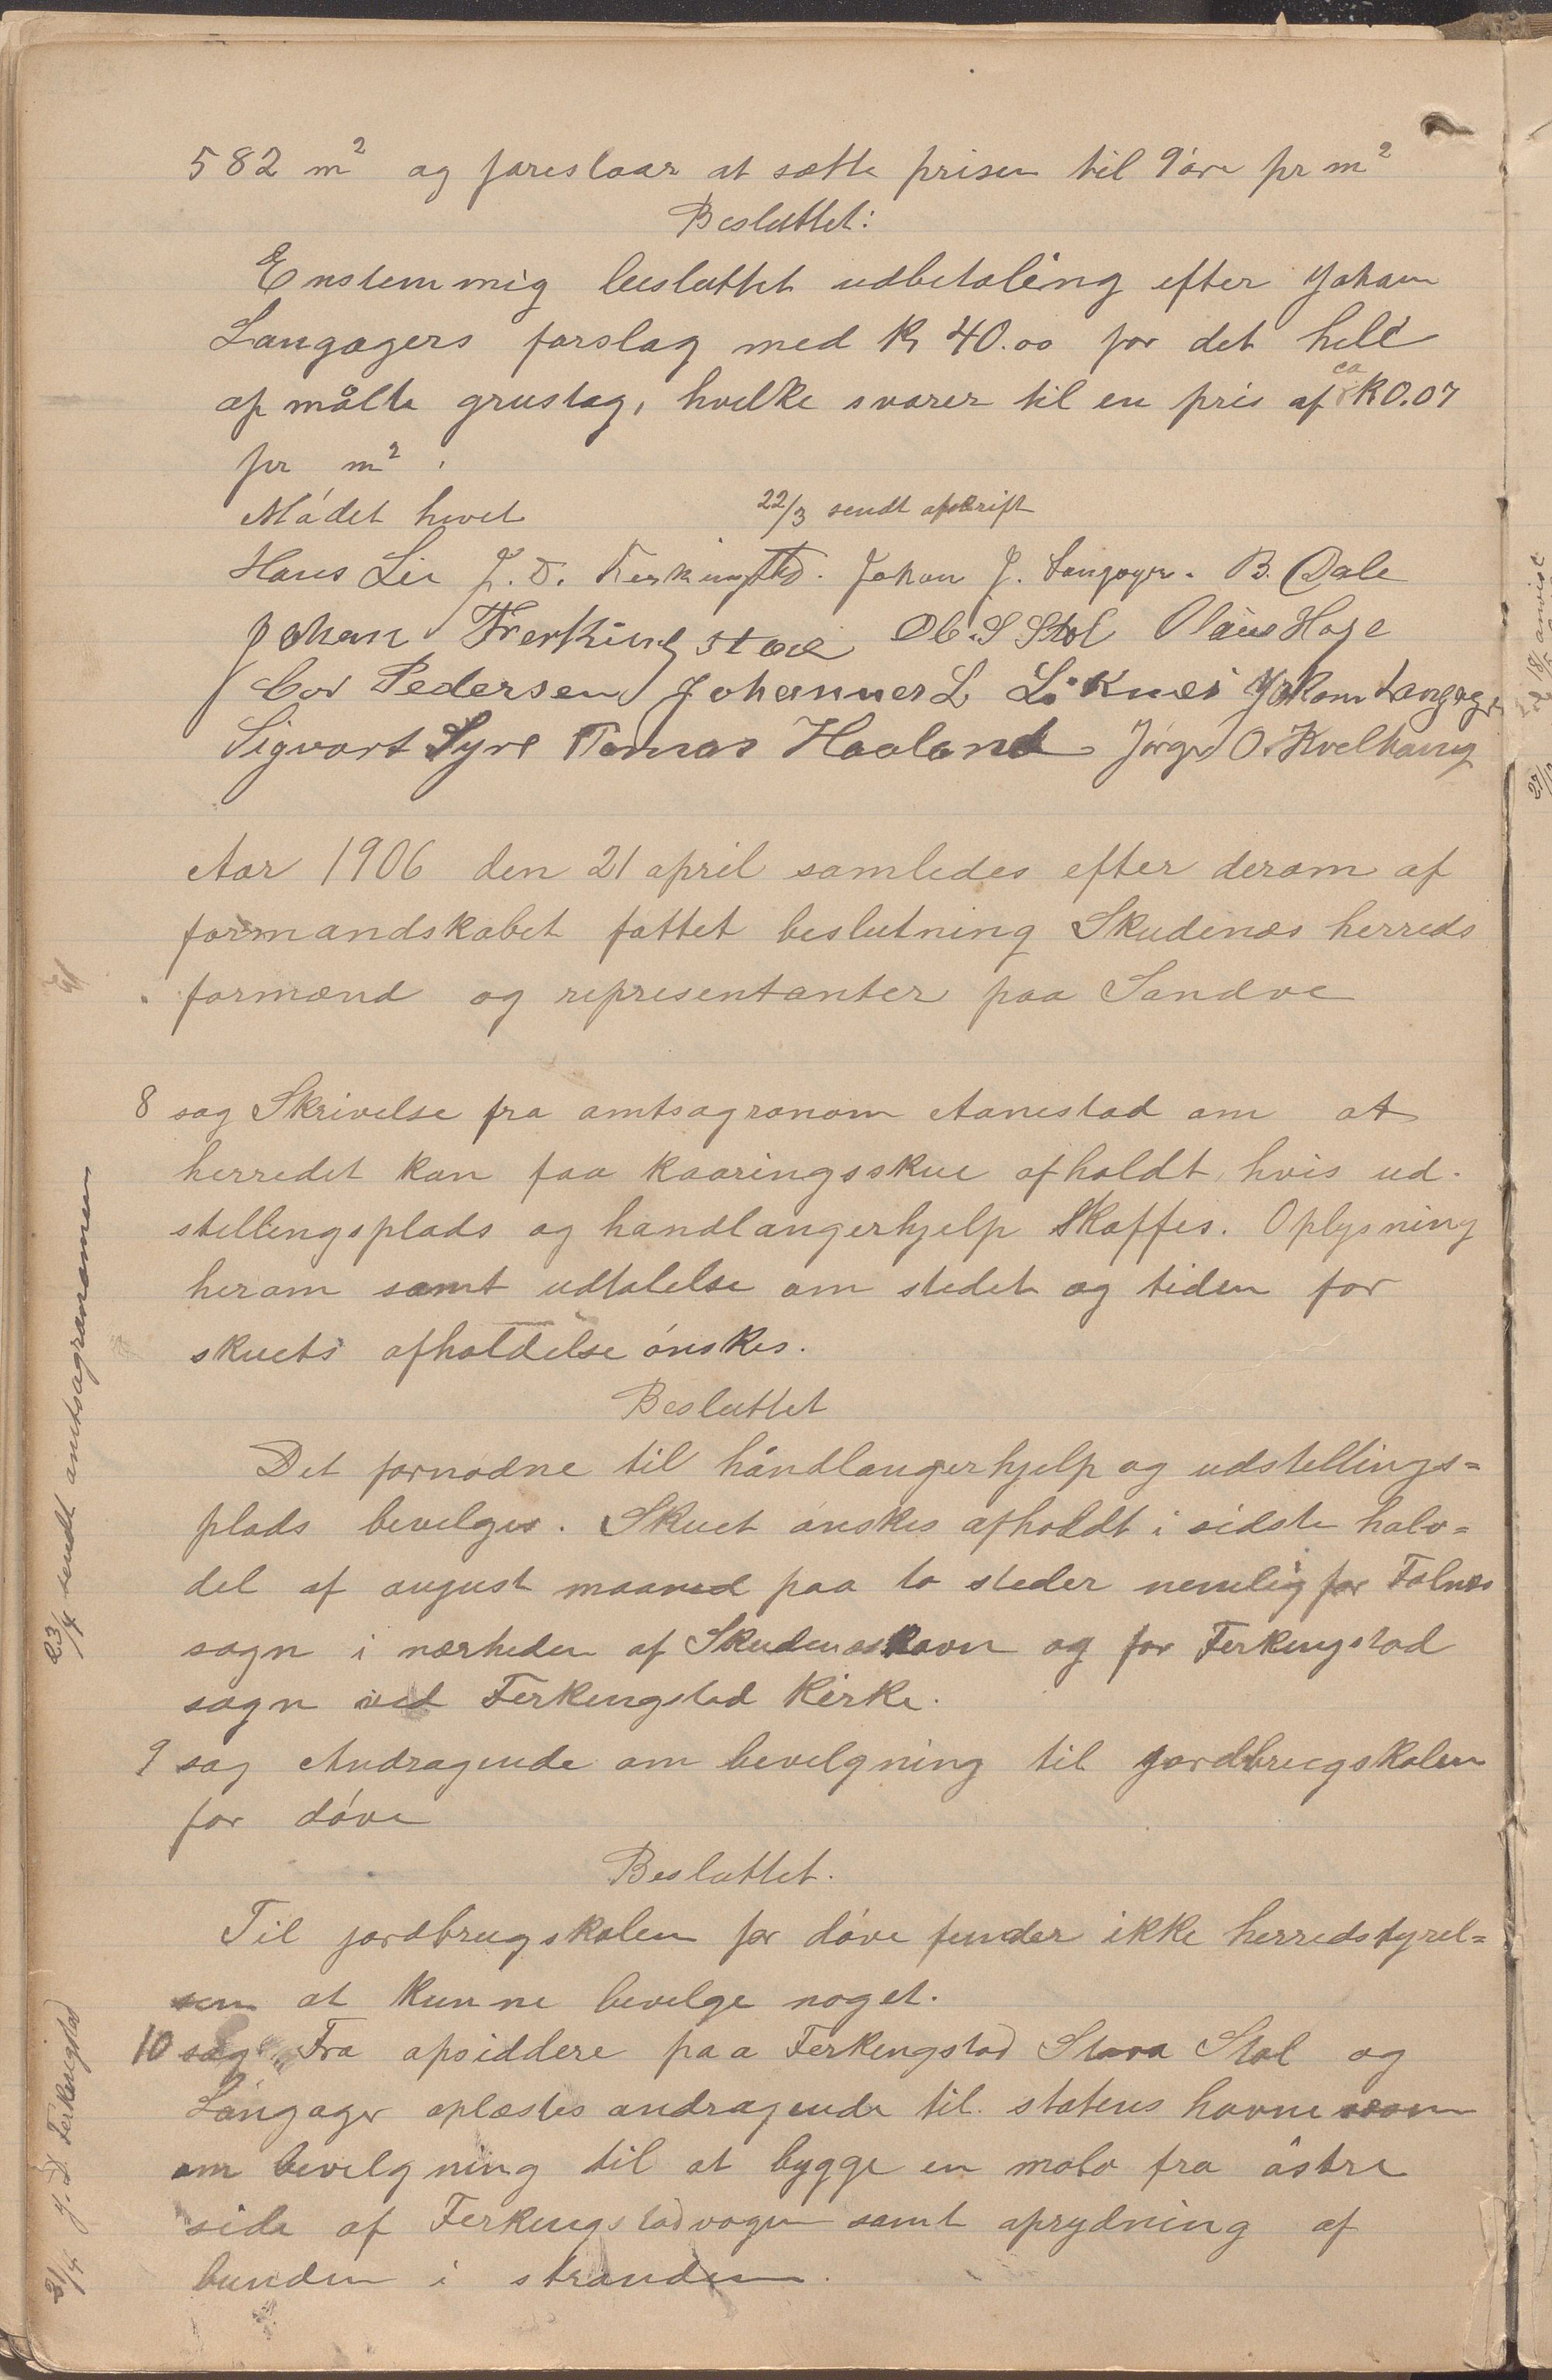 582 m² og foreslaar at sætte prisen til 9 øre pr m²
Besluttet:
Enstemmig besluttet udbetaling efter Johan
Langagers forslag med K 40.00 for det hele
af målte grustag, hvilke svarer til en pris af ca K 0.07
pr m².
Mødet hevet
22/3 sendt afskrift
Hans Lie J. D. Ferkingstad. Johan J. Langager. B. Dale
Johan Ferkingstad Ol. S Stol Olaus Hage
Cor Pedersen Johannes L Liknes Jakom Langager
Sigvart Syre Tomas Haaland Jørgen O. Kvelhaug
Aar 1906 den 21 april samledes efter derom af
formandskabet fattet beslutning Skudenes herreds
formænd og representanter paa Sandve
8 sag Skrivelse fra amtsagronom Aanestad om at
herredet kan faa kaaringsskue afholdt, hvis ud-
stillingsplads og handlangerhjelp skaffes. Oplysning
herom samt udtalelse om stedet og tiden for
skuets afholdelse ønskes.
Besluttet
Det fornødne til håndlangerhjelp og udstillings=
plads bevilges. Skuet ønskes afholdt i sidste halv=
del af august maaned paa to steder nemlig for Falnes
sogn i nærheden af Skudeneshavn og for Ferkingstad
sogn ved Ferkingstad Kirke.
9 sag Andragende om bevilgning til jordbrugskolen
for døve
Besluttet.
Til jordbrugskolen for døve finder ikke herredstyrel=
sen at kunne bevilge noget.
10 sag Fra opsiddere paa Ferkingstad Stava Stol og
Langager oplæstes andragende til statens havne
om bevilgning til at bygge en molo fra østre
side af Ferkingstadvagen samt oprydning af
bunden i stranden.
23/4 sendt amtsagronomen
21/4 J. D. Ferkingstad